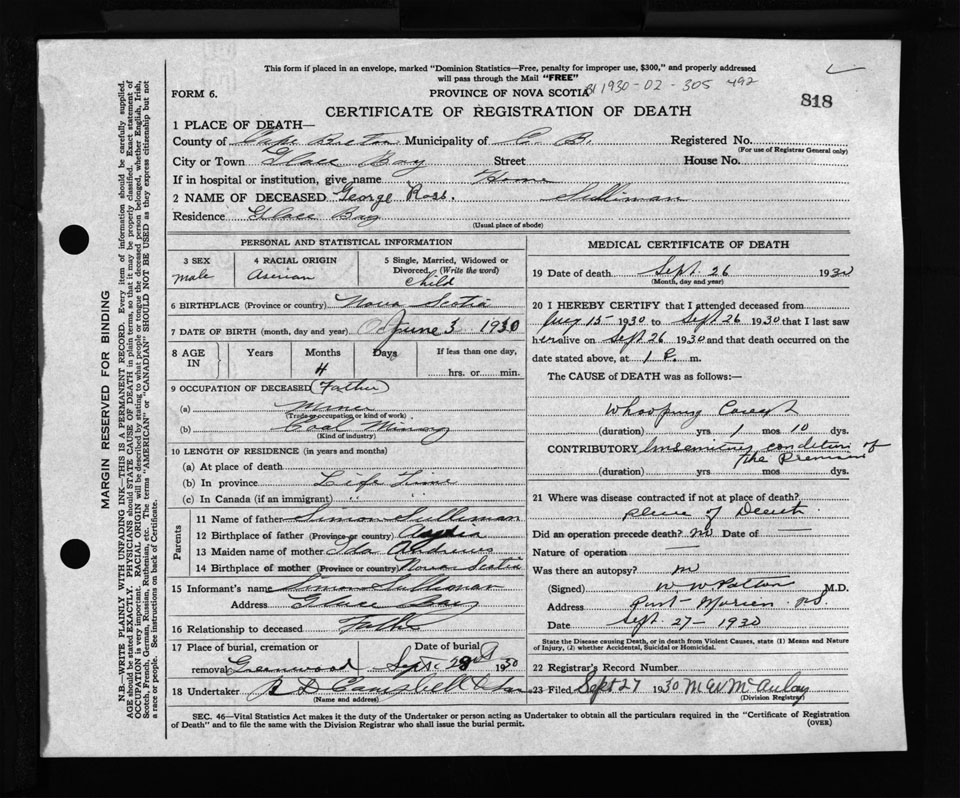 This form if placed in an envelope, marked "Dominion Statistics—Free, penalty for improper use, $300," and properly addressed
will pass through the Mail "FREE"
FORM 6.
PROVINCE OF NOVA SCOTIA
1930-02-305 492
818
CERTIFICATE OF REGISTRATION OF DEATH
1 PLACE OF DEATH—
County of Cape Breton Municipality of C. B. Registered No.
(For use of Registrar General only)
City or Town Glace Bay Street House No.
If in hospital or institution, give name Home
2 NAME OF DECEASED George Ross. Sulliman
Residence Glace Bay
(Usual place of abode)
PERSONAL AND STATISTICAL INFORMATION
3 SEX
male
4 RACIAL ORIGIN
5 Single, Married, Widowed or
Divorced, (Write the word)
Child
6 BIRTHPLACE (Province or country) Nova Scotia
7 DATE OF BIRTH (month, day and year) June 3 1930
8 AGE
IN
Years
Months
4
Days
If less than one day,
hrs. or min.
9 OCCUPATION OF DECEASED (Father)
(a) Miner
(Trade, occupation or kind of work)
(b) Coal Mining
(Kind of industry)
10 LENGTH OF RESIDENCE (in years and months)
(a) At place of death
(b) In province Life Time
(c) In Canada (if an immigrant) " "
Parents
11 Name of father Simon Sulliman
12 Birthplace of father (Province or country)
13 Maiden name of mother Ida Andrews
14 Birthplace of mother (Province or country) Nova Scotia
15 Informant's name Simon Sulliman
Address Glace Bay
16 Relationship to deceased Father
17 Place of burial, cremation or
removal Greenwood
Date of burial
Sept 28 1930
18 Undertaker Campbell
(Name and address)
MEDICAL CERTIFICATE OF DEATH
19 Date of death Sept 26 1930
(Month, day and year)
20 I HEREBY CERTIFY that I attended deceased from
Aug 15 1930 to Sept 26 1930 that I last saw
alive on Sept 26 1930 and that death occurred on the
date stated above, at 1 P. m.
The CAUSE of DEATH was as follows:—
Whooping Cough
(duration) yrs 1 mos 10 dys.
CONTRIBUTORY Insanitary condition of
the
(duration) yrs mos dys.
21 Where was disease contracted if not at place of death?
place of Death
Did an operation precede death? no Date of —
Nature of operation —
Was there an autopsy? no
(Signed) W W Patton M.D.
Address Port Morien NS.
Date Sept. 27-1930
State the Disease causing Death, or in death from Violent Causes, state (1) Means and Nature
of Injury, (2) whether Accidental, Suicidal or Homicidal.
22 Registrar's Record Number
23 Filed Sept 27 1930 McAulay
(Division Registrar)
SEC. 46—Vital Statistics Act makes it the duty of the Undertaker or person acting as Undertaker to obtain all the particulars required in the "Certificate of Registration
of Death" and to file the same with the Division Registrar who shall issue the burial permit.
(OVER)
MARGIN RESERVED FOR BINDING
N.B.—WRITE PLAINLY WITH UNFADING INK—THIS IS A PERMANENT RECORD. Every item of information should be carefully supplied.
AGE should be stated EXACTLY. PHYSICIANS should STATE CAUSE OF DEATH in plain terms, so that it may be properly classified. Exact statement of
OCCUPATION is very important. RACIAL ORIGIN will be described by stating to what people or tongue the deceased person belonged, whether English, Irish,
Scotch, French, German, Russian, Ruthenian, etc. The terms "AMERICAN" or "CANADIAN" SHOULD NOT BE USED as they express citizenship but not
a race or people. See instructions on back of Certificate.